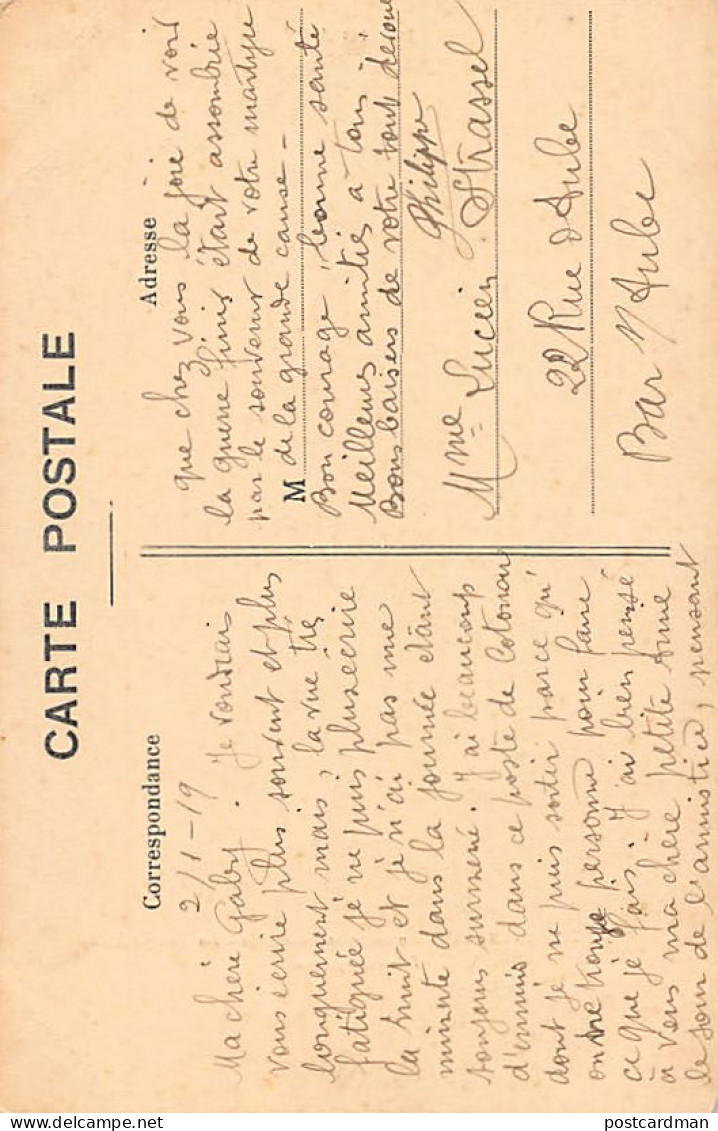 CARTE POSTALE
Correspondance
2/1-19
Ma chère Gaby. Je voudrais
vous écrire plus souvent et plus
longuement mais, la vue très
fatiguée je ne puis plus écrire
la nuit et je n'ai pas une
minute dans la journée étant
toujours surmené. J'ai beaucoup
d'ennuis dans ce poste de Cotonou
dont je ne puis sortir parce qu'
on ne trouve personne pour faire
ce que je fais. J'ai bien pensé
à vous ma chère petite Anne
le jour de l'armistice, pensant
Adresse
que chez vous la joie de voir
la guerre finie était assombrie
par le souvenir de votre martyre
M de la grande cause -
Bon courage, bonne santé
Meilleures amitiés à tous
Bons baisers de votre tout dévoué
Philippe
Mme Lucien Strassel
22 Rue d'Aube
Bar s/Aube
postcardman